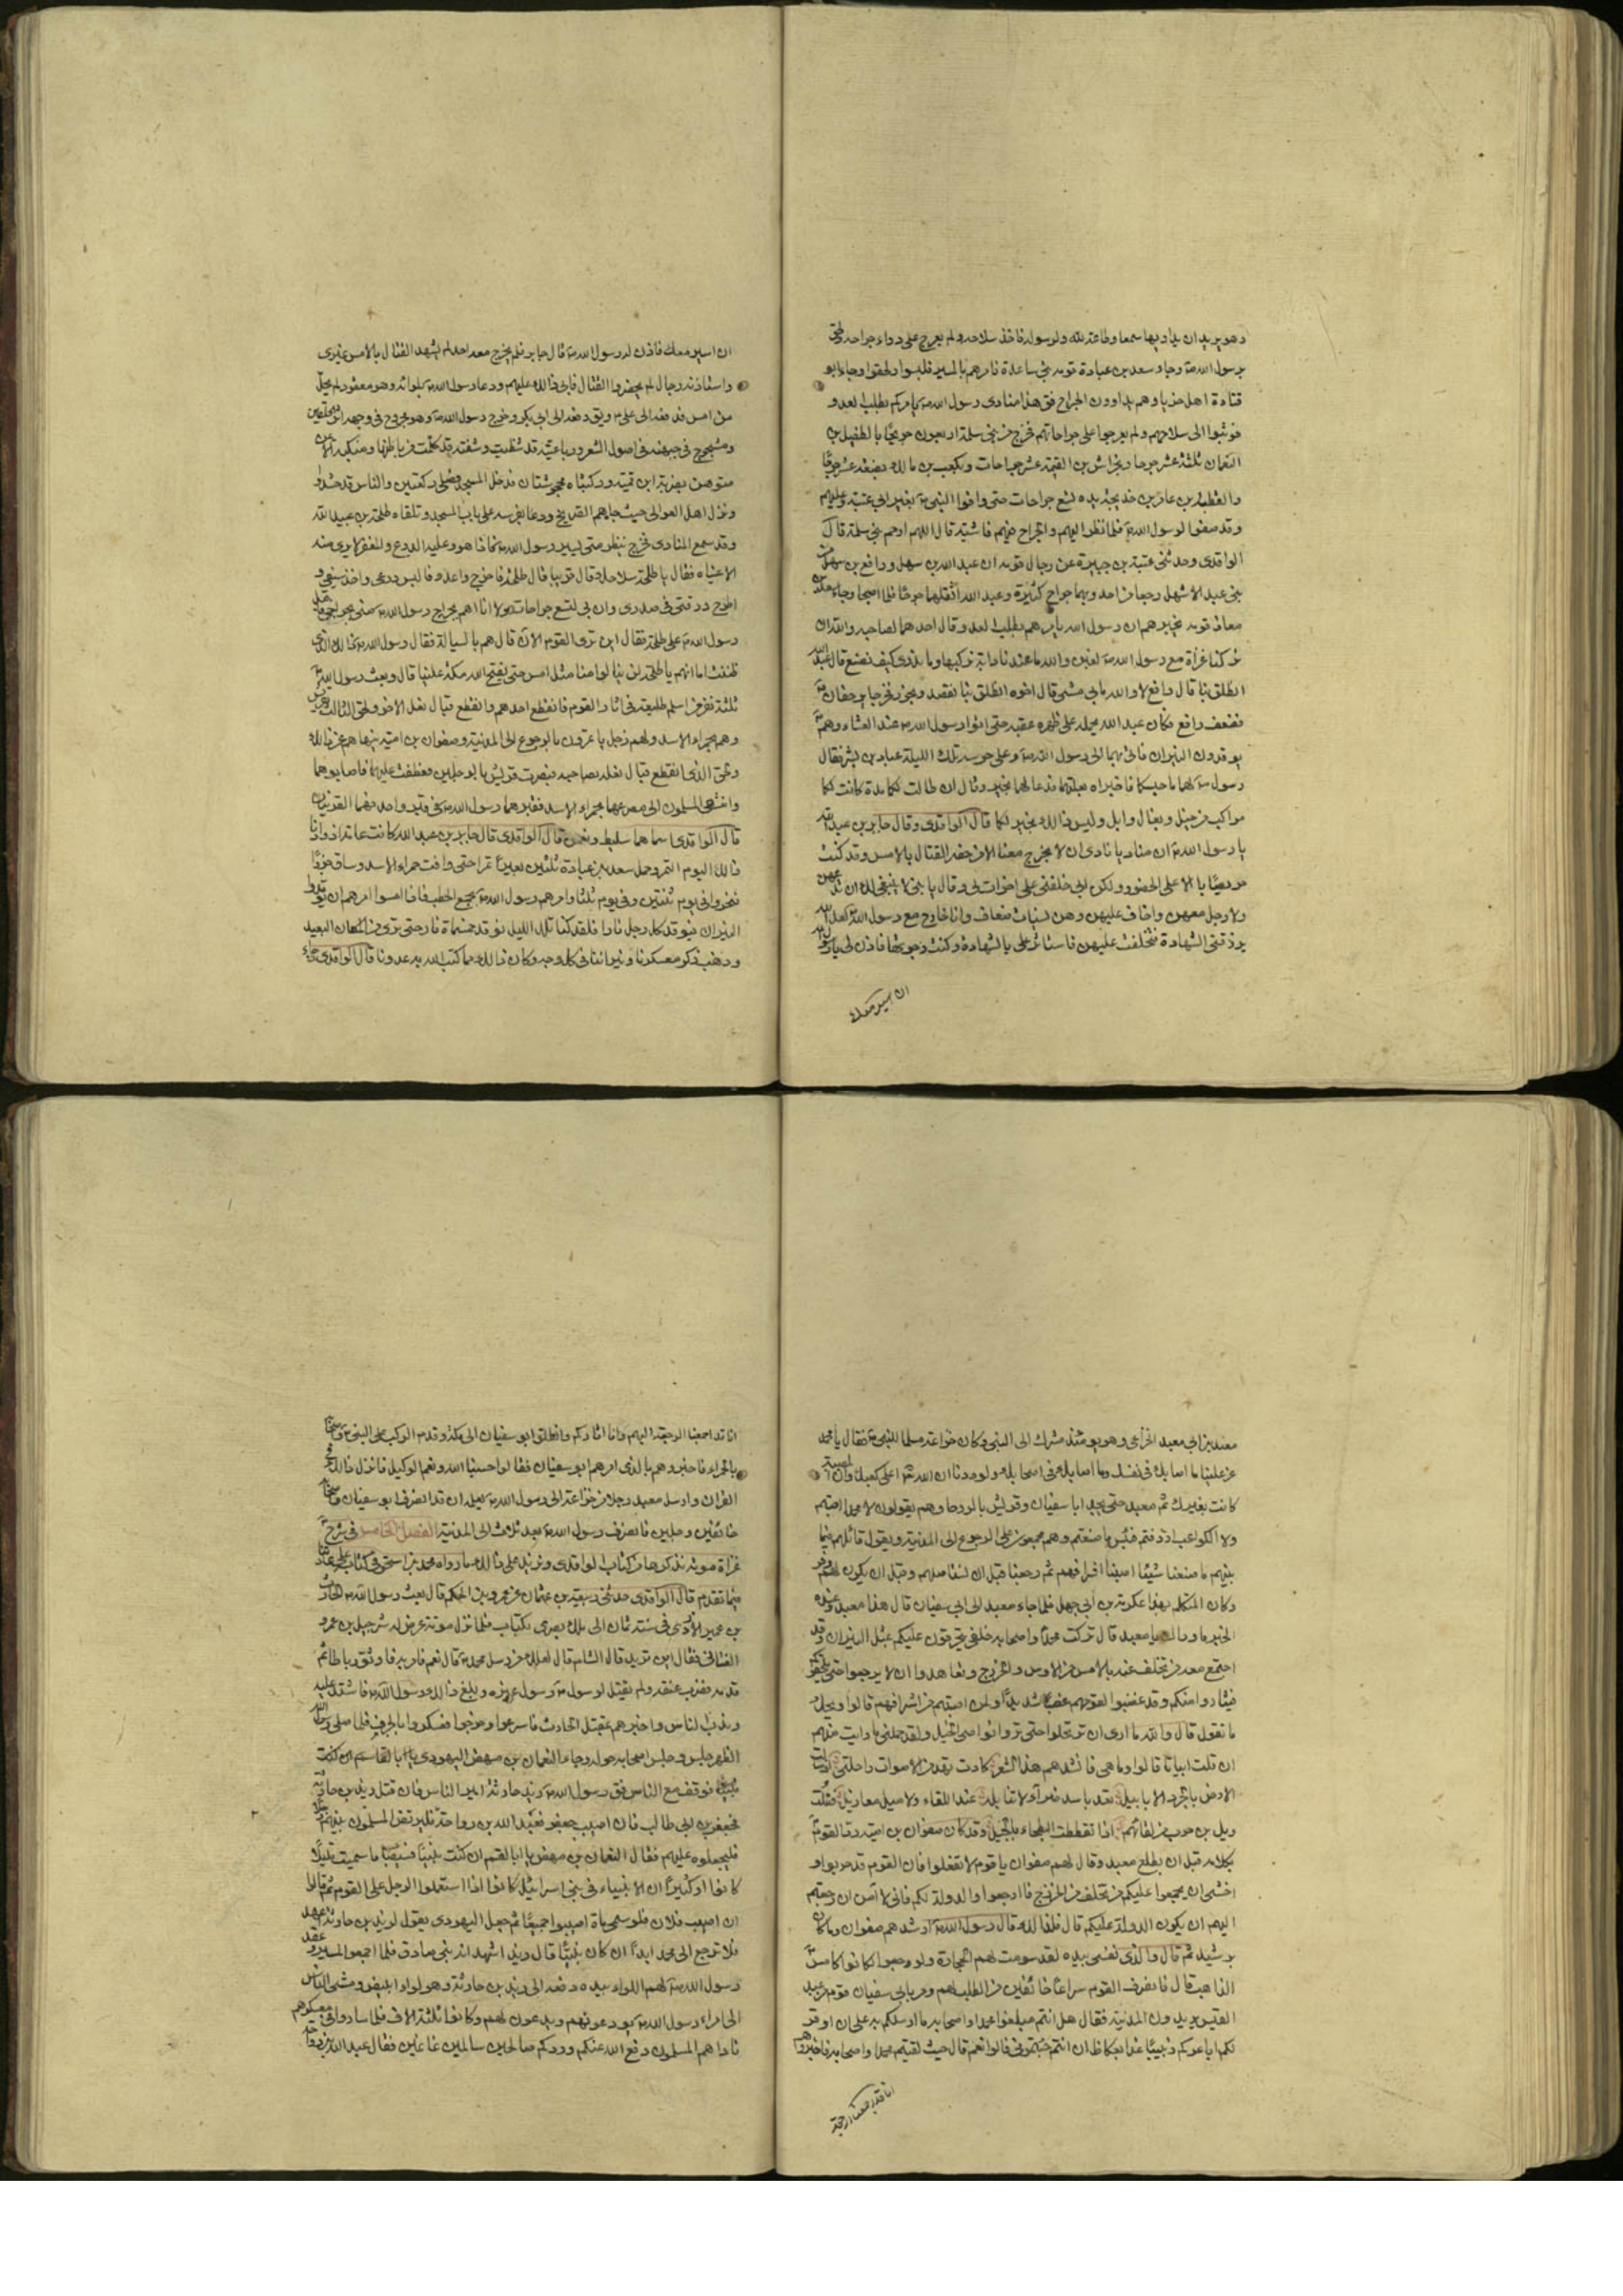 وهو يريد ان يداويها سمعا وطاعة لله ولرسوله فاخذ سلاحه ولم يعرج على دواء جراحه ولحق
برسول الله ص وجاء سعد بن عبادة قومه بني ساعدة فامرهم بالمسير فلبسوا ولحقوا وجاء ابو
قتادة اهل خربا وهم يداوون الجراح فق هذا منادى رسول الله ص يامركم بطلب العدو
فوثبوا الى سلاحهم ولم يعرجوا على جراحاتهم فخرج من بني سلمة اربعون جريحًا بالطفيل بن
النعمان ثلثة عشر جرحا وبخراش بن الصمة عشر جراحات وبكعب بن مالك بضعة عشر جرحًا
والقطبة بن عامر بن حديدة بيده تسع جراحات حتى وافوا النبي ص ببئر ابي عتبة وعليهم
وقد صفوا لرسول الله ص فلما نظر اليهم والجراح فيهم فاشية قال اللهم ارحم بني سلمة قال
الواقدى وحدثنى عتبة بن جبيرة عن رجال قومه ان عبد الله بن سهل ورافع بن سهل من
بني عبد الاشهل رجعا من احد وبهما جراح كثيرة وعبد الله اثقلهما جرحًا فلما اصبحا وجاء سعد بن
معاذ قومه يخبرهم ان رسول الله يامرهم بطلب العدو قال احدهما لصاحبه والله ان
تركنا غزاة مع رسول الله ص لغبن والله ما عندنا دابة نركبها وما ندرى كيف نصنع قال عبد الله
انطلق بنا قال رافع لا والله ما بي مشى قال اخوه انطلق بنا نقصد ونجوز فخرجا يزحفان
فضعف رافع فكان عبد الله يحمله على ظهره عقبة حتى اتوا رسول الله ص عند العشاء وهم
يوقدون النيران فاتى بهما الى رسول الله ص وعلى حرسه تلك الليلة عباد بن بشر فقال
رسول ص لهما ما حبسكما فاخبراه بعلتهما فدعا لهما بخير وقال ان طالت لكما مدة كانت لكما
مراكب من خيل وبغال وابل وليس ذالك بخير لكما قال الواقدى وقال جابر بن عبد الله
يا رسول الله ص ان مناديا نادى ان لا يخرج معنا الا من حضر القتال بالامس وقد كنت
حريصًا بالا على الحضور ولكن ابي خلفنى على اخوات لى وقال يا بنى لا ينبغى لك ان تدعهن
ولا رجل معهن واخاف عليهن وهن نسيات ضعاف وانا خارج مع رسول الله لعل الله
يرزقنى الشهادة فتخلفت عليهن فاستاثر على بالشهادة وكنت رجوتها فاذن لى يا رسول الله
ان اسير معك
ان اسير معك فاذن له رسول الله ص قال جابر فلم يخرج معه احد لم يشهد القتال بالامس غيرى
واستاذنه رجال لم يحضروا القتال فابى ذالك عليهم ودعا رسول الله ص بلوائه وهو معقود لم يحل
من امس فدفعه الى على ع ويق دفعه الى ابي بكر وخرج رسول الله ص وهو مجروح في وجهه اثر الحلقتين
ومشجوج في جبهته في اصول الشعر ورباعيته قد شظيت وشفته قد كلمت من باطنها ومنكبه الايمن
متوهن بضربة ابن قميئة وركبتاه مجحوشتان فدخل المسجد فصلى ركعتين والناس قد حشدوا
ونزل اهل العوالى حيث جاءهم الصريخ ودعا بفرسه على باب المسجد وتلقاه طلحة بن عبيد الله
وقد سمع المنادى فخرج ينظر متى يسير رسول الله ص فاذا هو وعليه الدرع والمغفر لا يرى منه
الا عيناه فقال يا طلحة سلاحك قال قريبا قال طلحة فاخرج واعدو فالبس درعى واخذ سيفى و
اطرح درقتى في صدرى وان بي لتسع جراحات ولانا اهم بجراح رسول الله ص منى بجراحى فاقبل
رسول الله ص على طلحة فقال اين ترى القوم الان قال هم بالسيالة فقال رسول الله ص ذالك الذى
ظننت اما انهم يا طلحة لن ينالوا منا مثل امس حتى يفتح الله مكة علينا قال وبعث رسول الله ص
ثلثة نفر من اسلم طليعة في اثار القوم فانقطع احدهم وانقطع قبال نعل الاخر ولحق الثالث بقريش
وهم بحمراء الاسد ولهم زجل ياتمرون بالرجوع الى المدينة وصفوان بن امية ينهاهم عن ذالك
ولحق الذى انقطع قبال نعله بصاحبه فبصرت قريش بالرجلين فعطفت عليهما فاصابوهما
وانتهى المسلمون الى مصرعهما بحمراء الاسد فقبرهما رسول الله ص في قبر واحد فهما القرينان
قال الواقدى اسماهما سليط ونعمن قال الواقدى قال جابر بن عبد الله كانت عامة ازوادنا
ذالك اليوم التمر وحمل سعد بن عبادة ثلثين بعيرًا تمرا حتى وافت حمراء الاسد وساق جزرًا
فنحروا في يوم ثنتين وفي يوم ثلثا وامرهم رسول الله ص بجمع الحطب فاذا امسوا امرهم ان يوقدوا
النيران فيوقد كل رجل نارا فلقد كنا تلك الليل نوقد خمسماة نار حتى ترى من المكان البعيد
وذهب ذكر معسكرنا ونيراننا في كل وجه وكان ذالك مما كبت الله به عدونا قال الواقدى وجاء
معبد بن ابي معبد الخزاعى وهو يومئذ مشرك الى النبي وكان خزاعة مسلما للنبي ص فقال يا محمد
عز علينا ما اصابك في نفسك وما اصابك في اصحابك ولوددنا ان الله تع اعلى كعبك وان المصيبة
كانت بغيرك ثم معبد حتى يجد ابا سفيان وقريش بالروحا وهم يقولون لا محمدا اصبتم
ولا الكواعب اردفتم فبئس ما صنعتم وهم مجمعون على الرجوع الى المدينة ويقول قائلهم فيما
بينهم ما صنعنا شيئًا اصبنا اشرافهم ثم رجعنا قبل ان نستاصلهم وقبل ان يكون لهم وفر
وكان المتكلم بهذا عكرمة بن ابي جهل فلما جاء معبد الى ابي سفيان قال هذا معبد وعنده
الخبر ما وراك يا معبد قال تركت محمدًا واصحابه خلفي يتحرقون عليكم بمثل النيران وقد
اجتمع معه من تخلف عنه بالامس من الاوس والخزرج وتعاهدوا ان لا يرجعوا حتى يلحقوكم
فيثاروا منكم وقد غضبوا لقومهم غضبًا شديدًا ولمن اصبتم من اشرافهم قالوا ويحك
ما تقول قال والله ما ارى ان ترتحلوا حتى تروا نواصى الخيل ولقد حملنى ما رايت منهم
ان قلت ابياتا قالوا وما هى فانشدهم هذا الشعر كادت تهد من الاصوات راحلتى اذ سالت
الارض بالجرد الابابيل تعدو باسد ضراء لا تنابلة عند اللقاء ولا ميل معازيل فقلت
ويل بن حرب من لقائهم اذا تغطمطت البطحاء بالجيل وقد كان صفوان بن امية رد القوم
بكلامه قبل ان يطلع معبد وقال لهم صفوان يا قوم لا تفعلوا فان القوم قد حربوا و
اخشى ان يجمعوا عليكم من تخلف من الخزرج فارجعوا والدولة لكم فانى لا آمن ان رجعتم
اليهم ان يكون الدولة عليكم قال فلذالك قال رسول الله ص ارشدهم صفوان وما كان
برشيد ثم قال والذى نفسى بيده لقد سومت لهم الحجارة ولو رجعوا لكانوا كامس
الذاهب قال فانصرف القوم سراعًا خائفين من الطلب لهم ومر بابي سفيان قوم من عبد
القيس يريدون المدينة فقال هل انتم مبلغوا محمدا واصحابه ما ارسلكم به على ان اوقر
لكم اباعركم زبيبًا غدا بعكاظ ان انتم جئتمونى قالوا نعم قال حيث لقيتم محمدا واصحابه فاخبروهم
انا قد اجمعنا الرجعة
انا قد اجمعنا الرجعة اليهم وانا اثاركم وانطلق ابو سفيان الى مكة وقدم الركب على النبي ص واصحابه
بالحمراء فاخبروهم بالذى امرهم ابو سفيان فقالوا حسبنا الله ونعم الوكيل فانزل ذالك في
القران وارسل معبد رجلا من خزاعة الى رسول الله ص يعلمه ان قد انصرف ابو سفيان واصحابه
خائفين وجلين فانصرف رسول الله ص بعد ثلاث الى المدينة الفصل الخامس في شرح
غزاة موته نذكرها من كتاب الواقدى ونزيد على ذالك ما رواه محمد بن اسحق في كتابه على عادتنا
فيما تقدم قال الواقدى حدثنى ربيعة بن عثمان عن عمر وبن الحكم قال بعث رسول الله ص الحارث
بن عمير الازدى في سنة ثمان الى ملك بصرى بكتاب فلما نزل موتة عرض له شرحبيل بن عمرو
الغسانى فقال اين تريد قال الشام قال لعلك من رسل محمد ص قال نعم فامر به فاوثق رباطا ثم
قدمه فضرب عنقه ولم يقتل لرسول ص رسول غيره وبلغ ذالك رسول الله ص فاشتد عليه
وندب الناس واخبرهم بمقتل الحارث فاسرعوا وخرجوا فعسكروا بالجرف فلما صلى رسول الله
الظهر جلس وجلس اصحابه حوله وجاء النعمان بن مهض اليهودى يا ابا القاسم ان كنت
فوقف مع الناس فق رسول الله ص زيد بن حارثة امير الناس فان قتل زيد بن حارثة
فجعفر بن ابي طالب فان اصيب جعفر فعبد الله بن رواحة فليرتض المسلمون بينهم رجلا
فليجعلوه عليهم فقال النعمان بن مهض يا ابا القسم ان كنت نبيًا فسيصاب ما سميت قليلًا
كانوا او كثيرًا ان الانبياء في بني اسرائيل كانوا اذا استعملوا الرجل على القوم ثم قالوا
ان اصيب فلان فلو سمى ماة اصيبوا جميعًا ثم جعل اليهودى يقول لزيد بن حارثة اعهد
فلا ترجع الى محمد ابدًا ان كان نبيًّا قال زيد اشهد انه نبي صادق فلما اجمعوا المسير وعقد
رسول الله ص لهم اللواء بيده دفعه الى زيد بن حارثة وهو لواء ابيض ومشى الناس
الى امراء رسول الله ص يودعونهم ويدعون لهم وكانوا ثلثة الاف فلما ساروا في معسكرهم
ناداهم المسلمون دفع الله عنكم وردكم صالحين سالمين غانمين فقال عبد الله بن رواحة